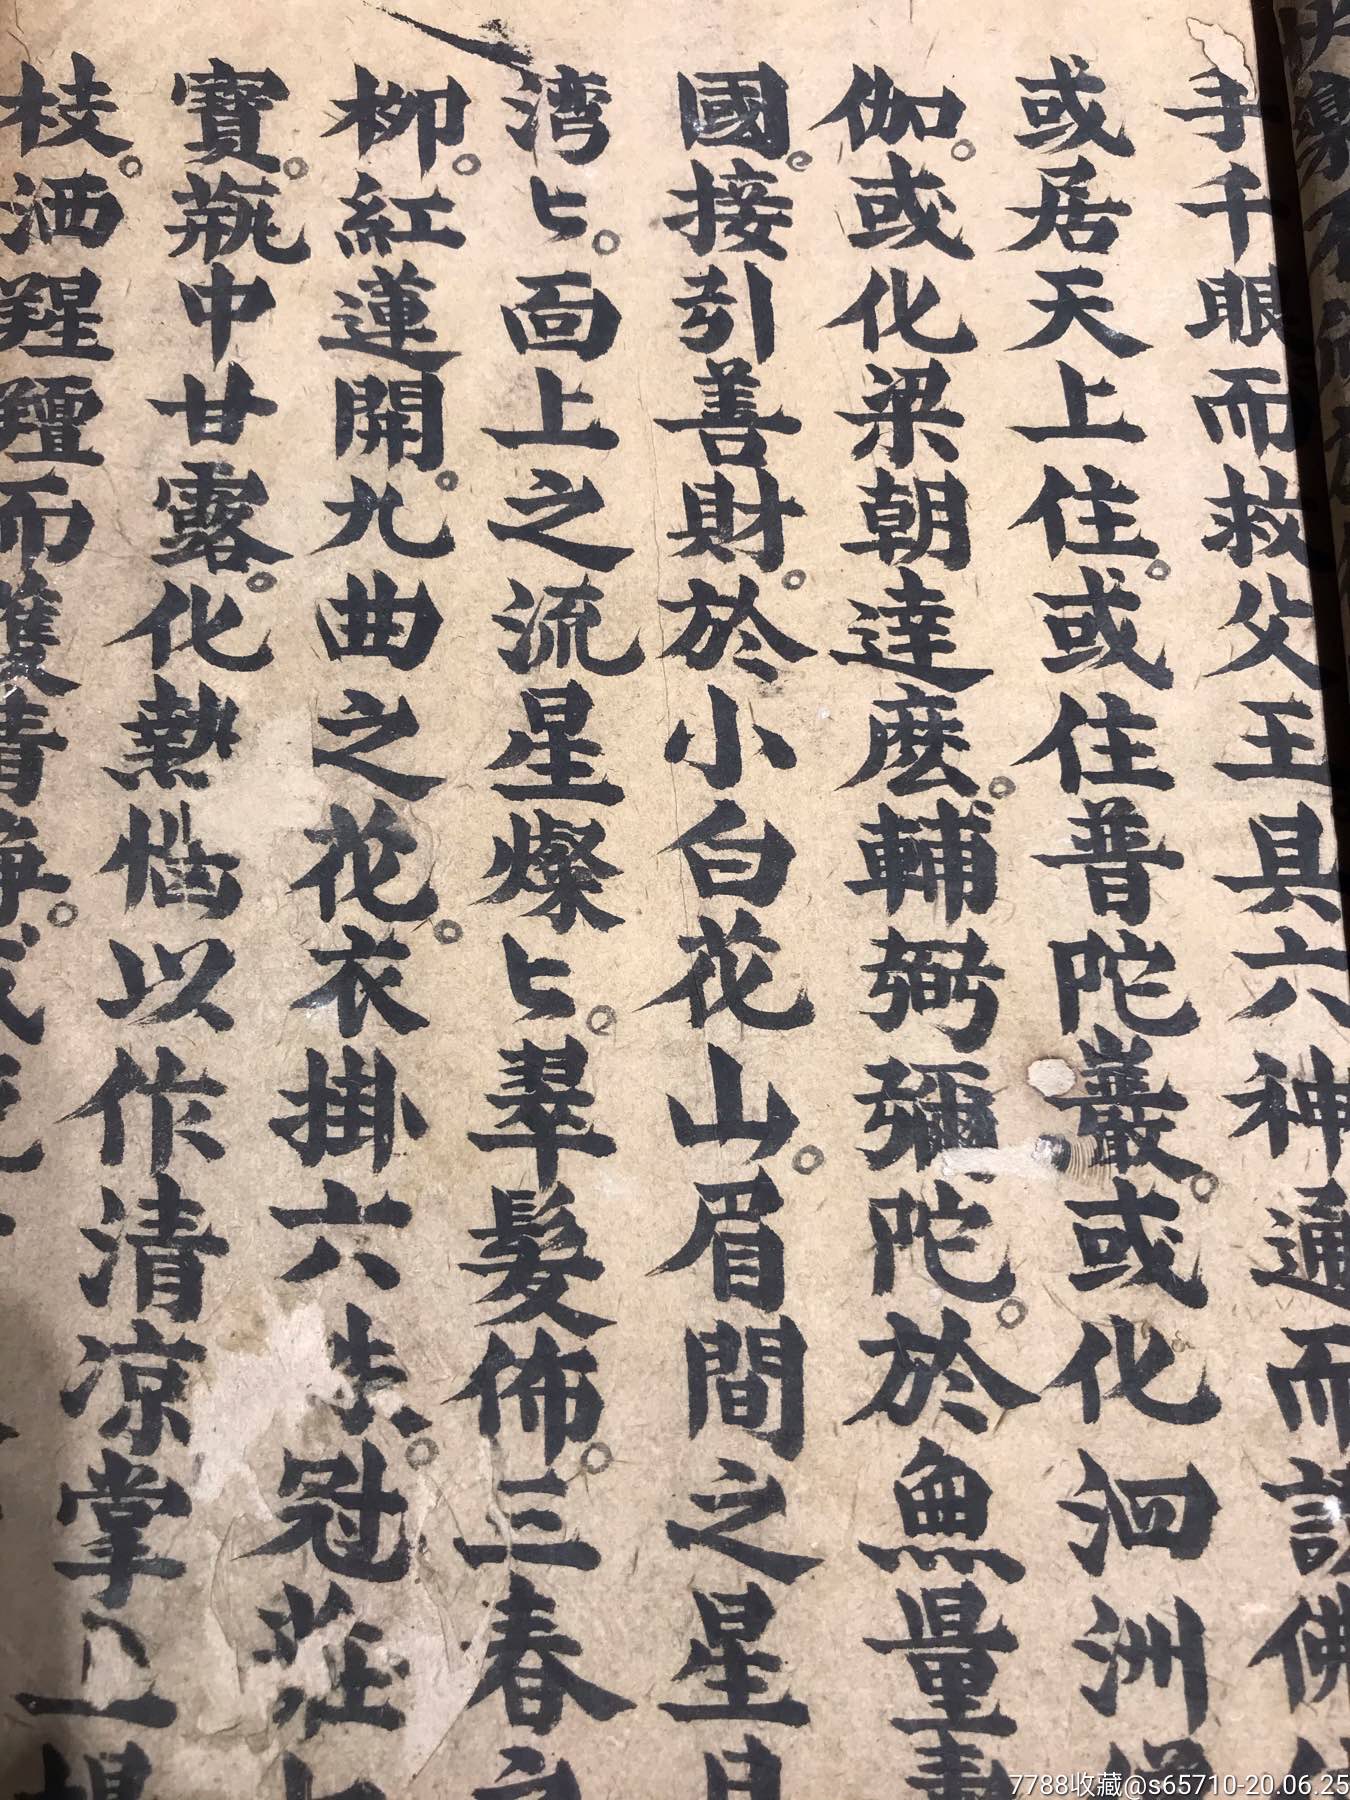 手千眼而救父王具六神通而請佛
或居天上住。或住普陀巖。或化泗洲
伽。或化梁朝達麽。輔弼彌陀。於無量壽
國。接引善財。於小白花山。眉間之星月
湾〻。面上之流星燦〻。翠髮佈。三春之
柳。紅蓮開。九曲之花。衣掛六銖。冠莊七
寶。瓶中甘露。化熱惱以作清凉掌上
枝。洒腥羶而獲清淨。
7788收藏@s65710-20.06.25